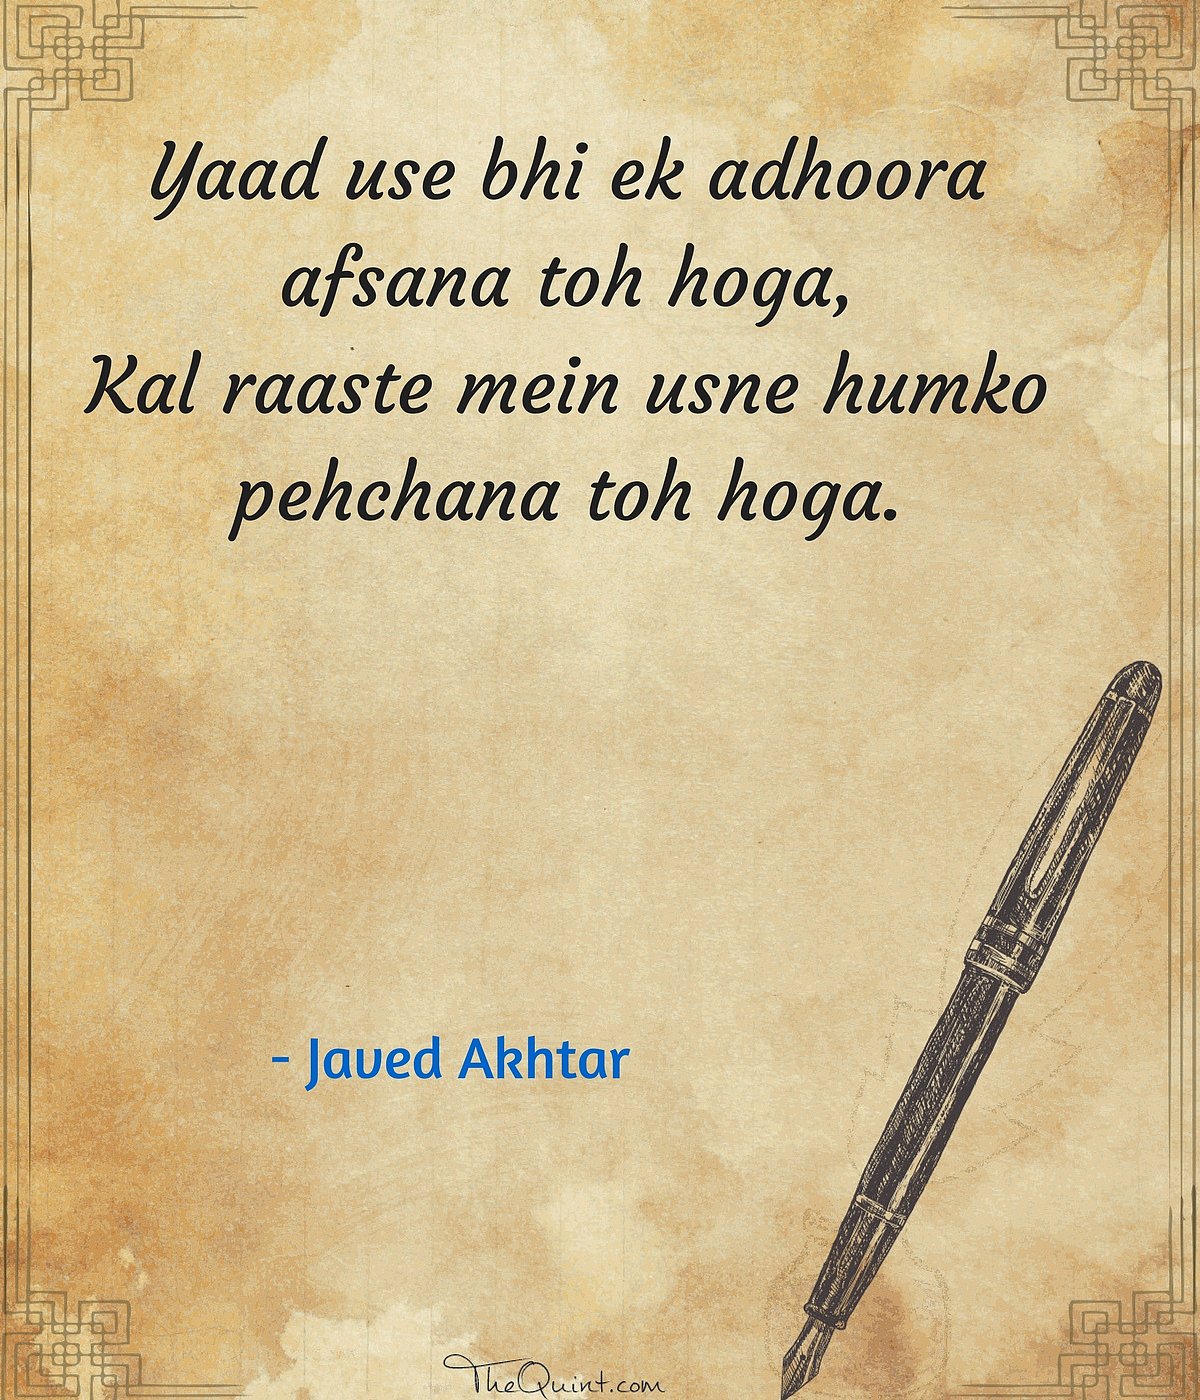 Yaad use bhi ek adhoora
afsana toh hoga,
Kal raaste mein usne humko
pehchana toh hoga.
- Javed Akhtar
TheQuint.com